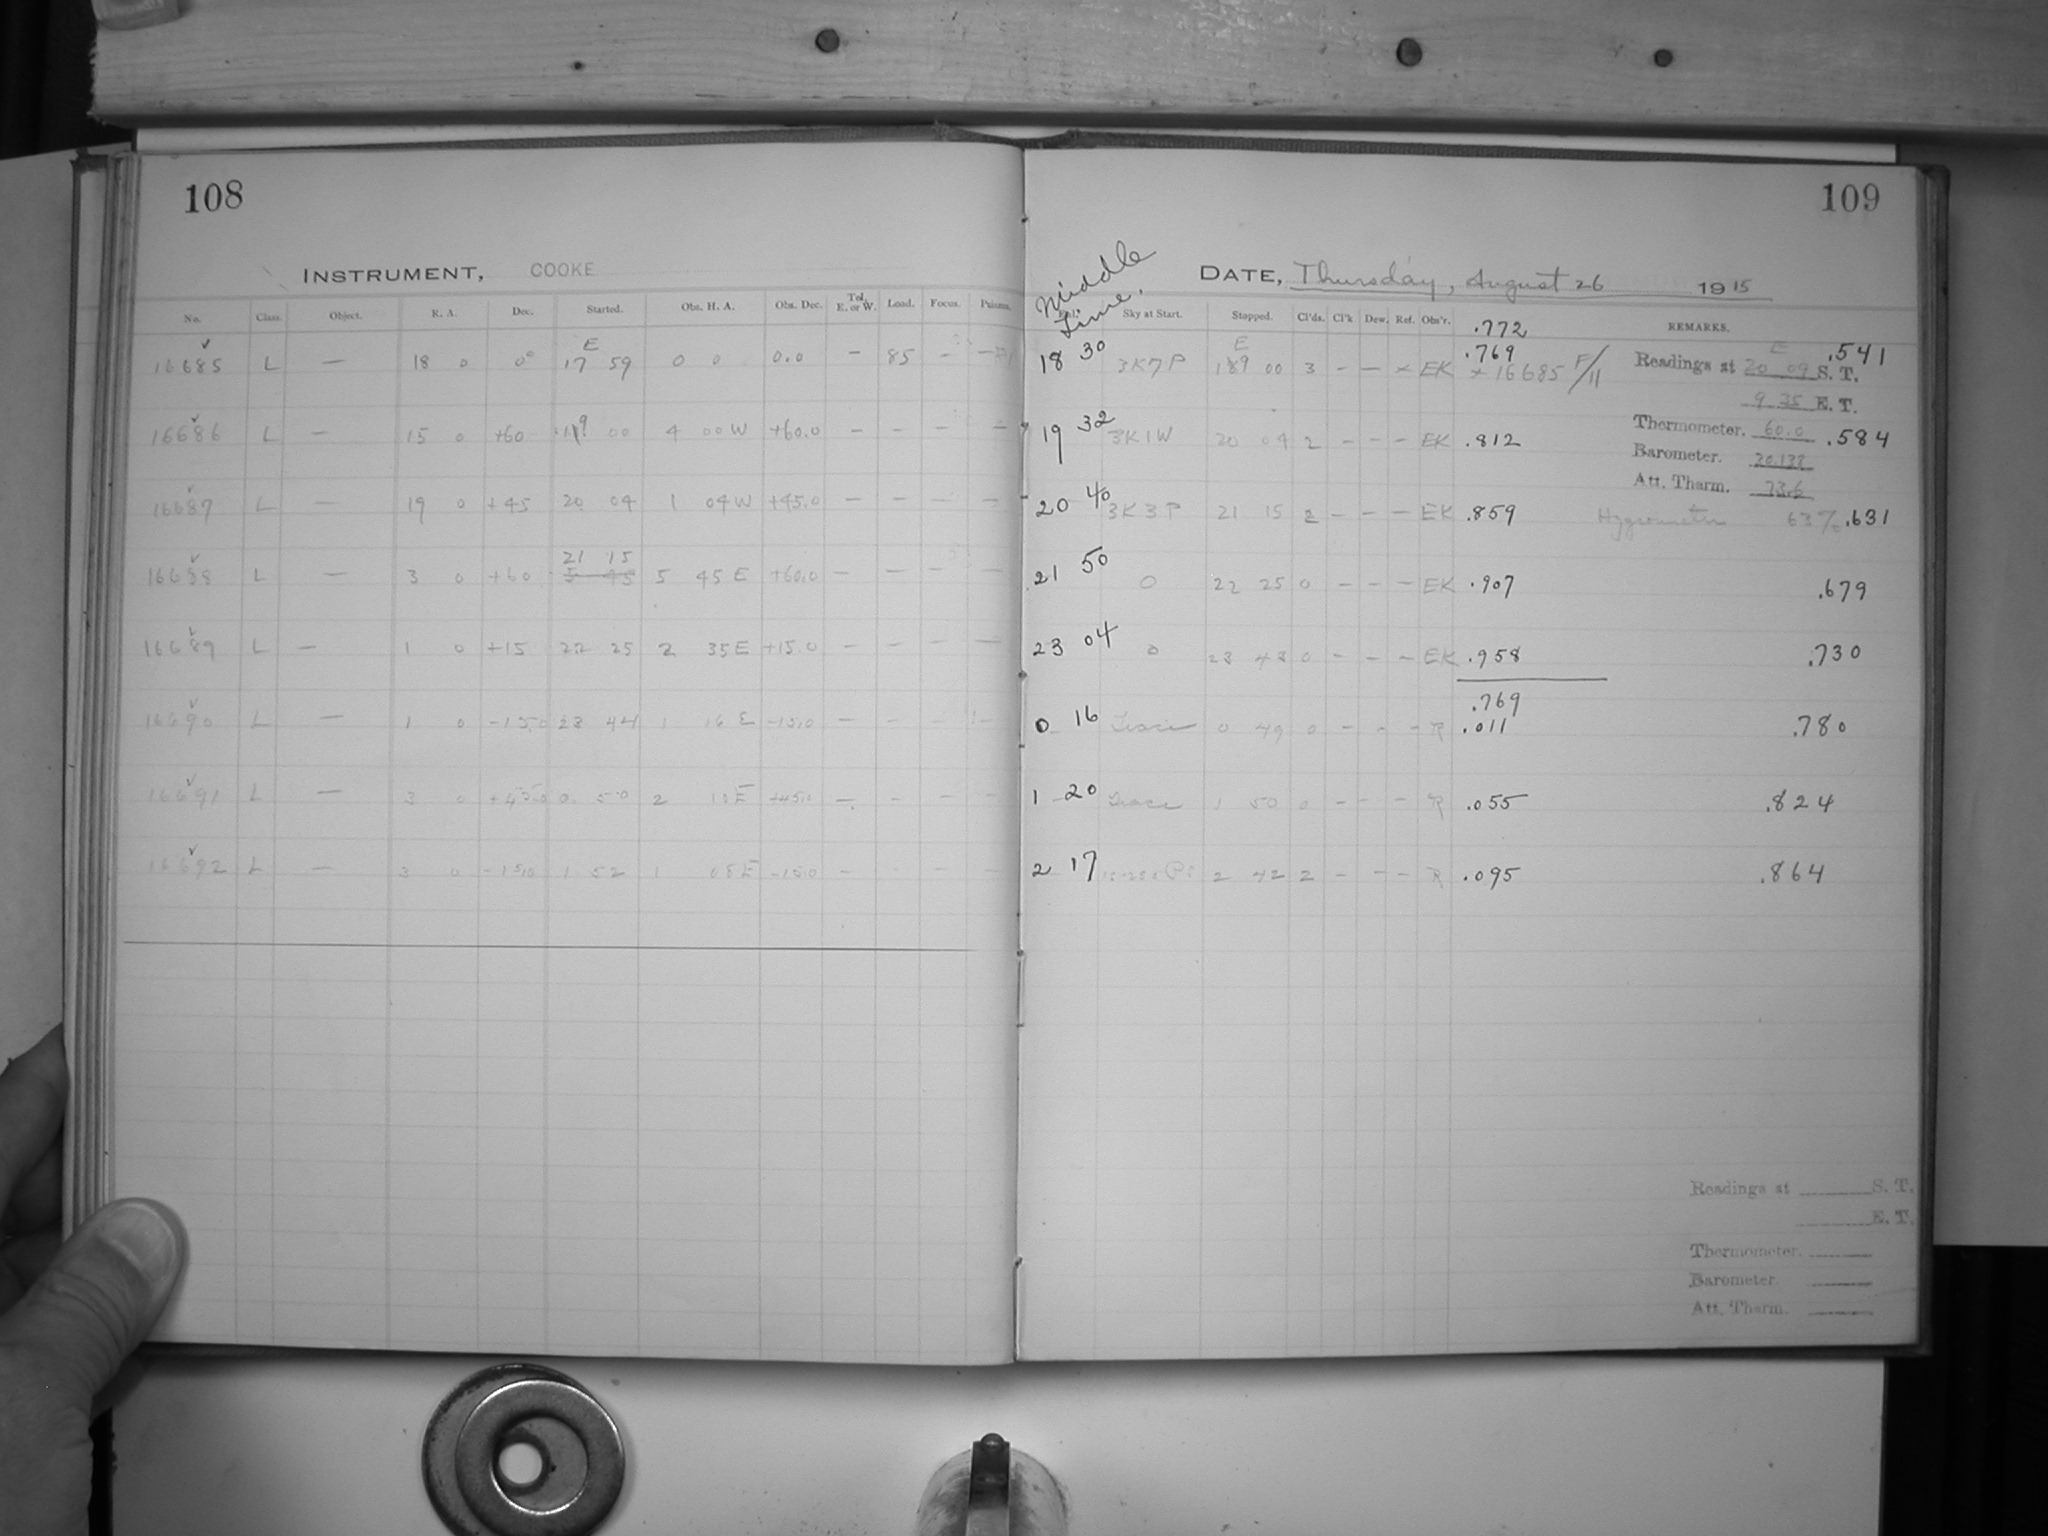 108
INSTRUMENT, COOKE
No. Class. Object. R. A. Dec. Started. Obs. H. A. Obs. Dec. Tel. E. or W. Load. Focus.
E
16685 L — 18 0 0° 17 59 0 0 0.0 — 85 -
16686 L — 15 0 +60 19 00 4 00 W +60.0 — — — —
16687 L — 19 0 +45 20 04 1 04 W +45.0 — — —
21 15
16688 L — 3 0 +60 5 45 5 45 E +60.0 — — — —
16689 L — 1 0 +15 22 25 2 35 E +15.0 — — — —
16690 L — 1 0 -15.0 23 44 1 16 E -15.0 — - - -
16691 L — 3 0 +45.0 0 50 2 10 E +45.0 — - - -
16692 L — 3 0 -15.0 1 52 1 08 E -15.0 — - - -
109
Middle Time.
DATE, Thursday, August 26 1915
Sky at Start. Stopped. Cl'ds. Cl'k Dew. Ref. Obs'r. REMARKS.
.772
E .769 E .541
18 30 3K7P 19 00 3 — — × EK × 16685 F/11 Readings at 20 09 S. T.
9 35 E. T.
19 32 3K1W 20 04 2 - - - EK .812 Thermometer. 60.0 .584
Barometer. 30.138
Att. Tharm. 73.6
20 40 3K3P 21 15 2 - - - EK .859 Hygrometer 63% .631
21 50 0 22 25 0 - - - EK .907 .679
23 04 0 23 43 0 - - - EK .958 .730
.769
0 16 Trace 0 49 0 - - - R .011 .780
1 20 Trace 1 50 0 - - - R .055 .824
2 17 2 42 2 - - - R .095 .864
Readings at S. T.
E. T.
Thermometer.
Barometer.
Att. Tharm.